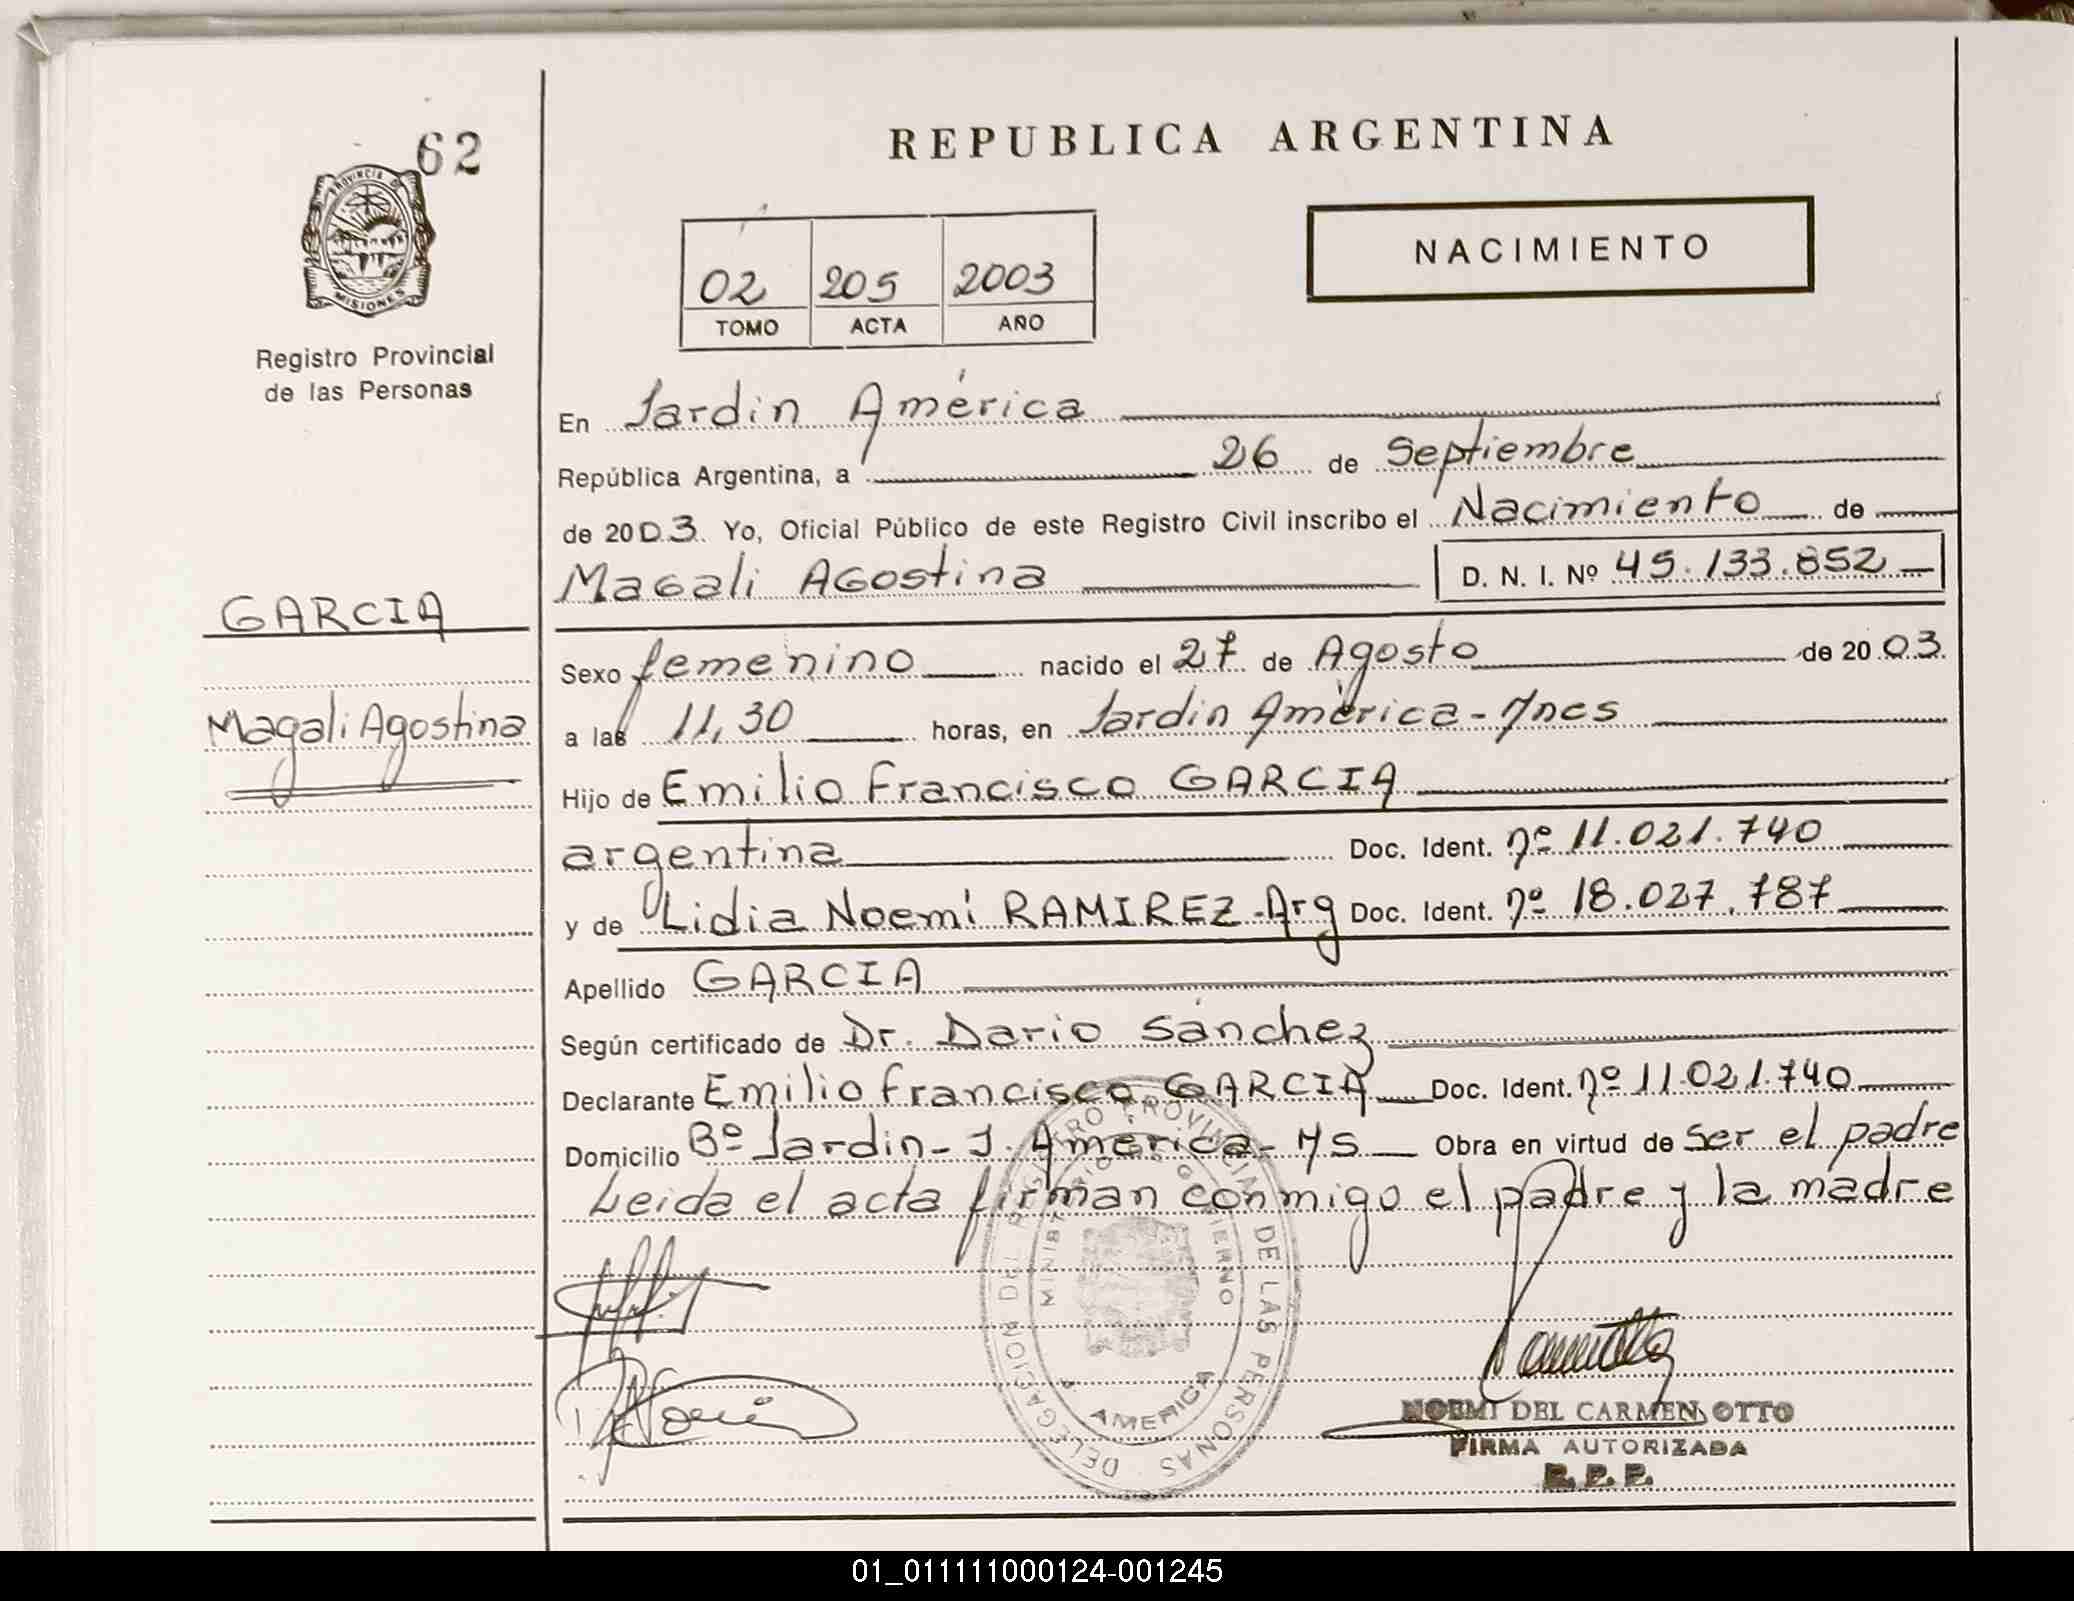 62
PROVINCIA DE
MISIONES
Registro Provincial
de las Personas
GARCIA
Magali Agostina
REPUBLICA ARGENTINA
NACIMIENTO
02 205 2003
TOMO ACTA AÑO
En Jardín América
República Argentina, a 26 de Septiembre
de 2003. Yo, Oficial Público de este Registro Civil inscribo el Nacimiento de
Magali Agostina D. N. I. Nº 45.133.852
Sexo femenino nacido el 27 de Agosto de 2003.
a las 11,30 horas, en Jardín América-
Hijo de Emilio Francisco GARCIA
argentina Doc. Ident. nº 11.021.740
y de Lidia Noemí RAMIREZ-Arg Doc. Ident. nº 18.027.787
Apellido GARCIA
Según certificado de Dr. Dario Sánchez
Declarante Emilio Francisco GARCIA Doc. Ident. nº 11.021.740
Domicilio Bº Jardín-J. América-Ms Obra en virtud de ser el padre
Leida el acta firman conmigo el padre y la madre
DELEGACION DEL REGISTRO PROVINCIAL DE LAS PERSONAS
MINISTERIO DE GOBIERNO
AMERICA
NOEMI DEL CARMEN OTTO
FIRMA AUTORIZADA
R. P. P.
01_011111000124-001245